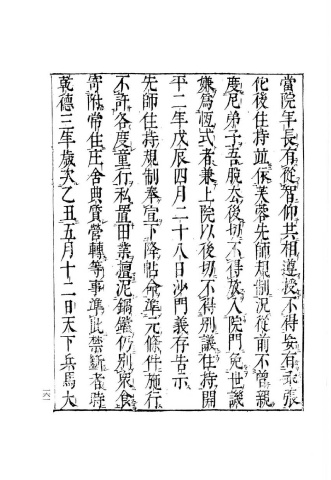 當院年長有從智仰共相遵授不得妄有乖張
化後住持並依芙蓉先師規制況從前不曾親
度尼弟子吾脫去後切不得放入院門免世譏
嫌爲恆式者兼上院以後切不得別議住持開
平二年戊辰四月二十八日沙門義存告示
先師住持規制奉宣下降帖命準元條件施行
不許各度童行私置田業擅泥鍋鑊仍別衆食
寄附常住庄舍典質營轉等事準此禁斷者時
乾德三年歲次乙丑五月十二日天下兵馬大